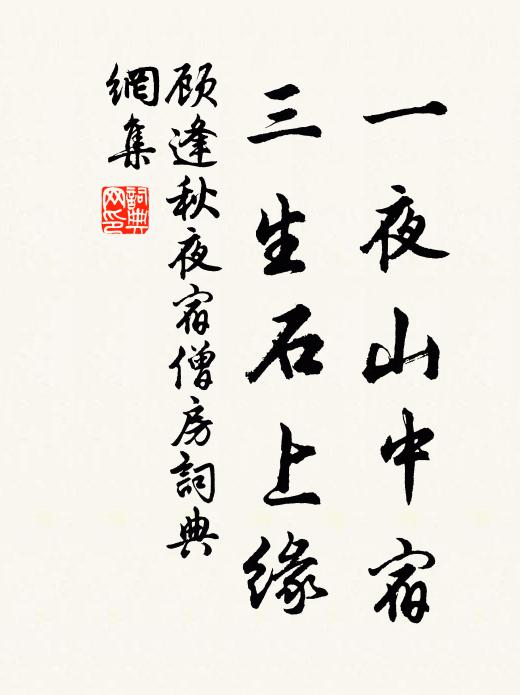 一夜山中宿
三生石上緣
顾逢秋夜宿僧房詞典
網集
詞典
网印